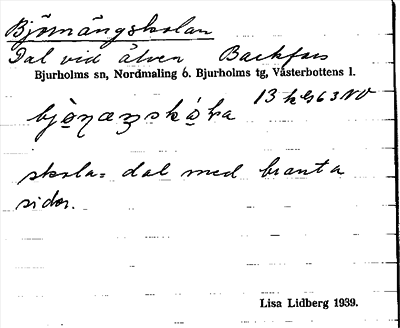 Björnängskolan
Dal vid älven Backfors
Bjurholms sn, Nordmaling ö. Bjurholms tg, Västerbottens l.
skola = dal med branta
sidor.
Lisa Lidberg 1939.